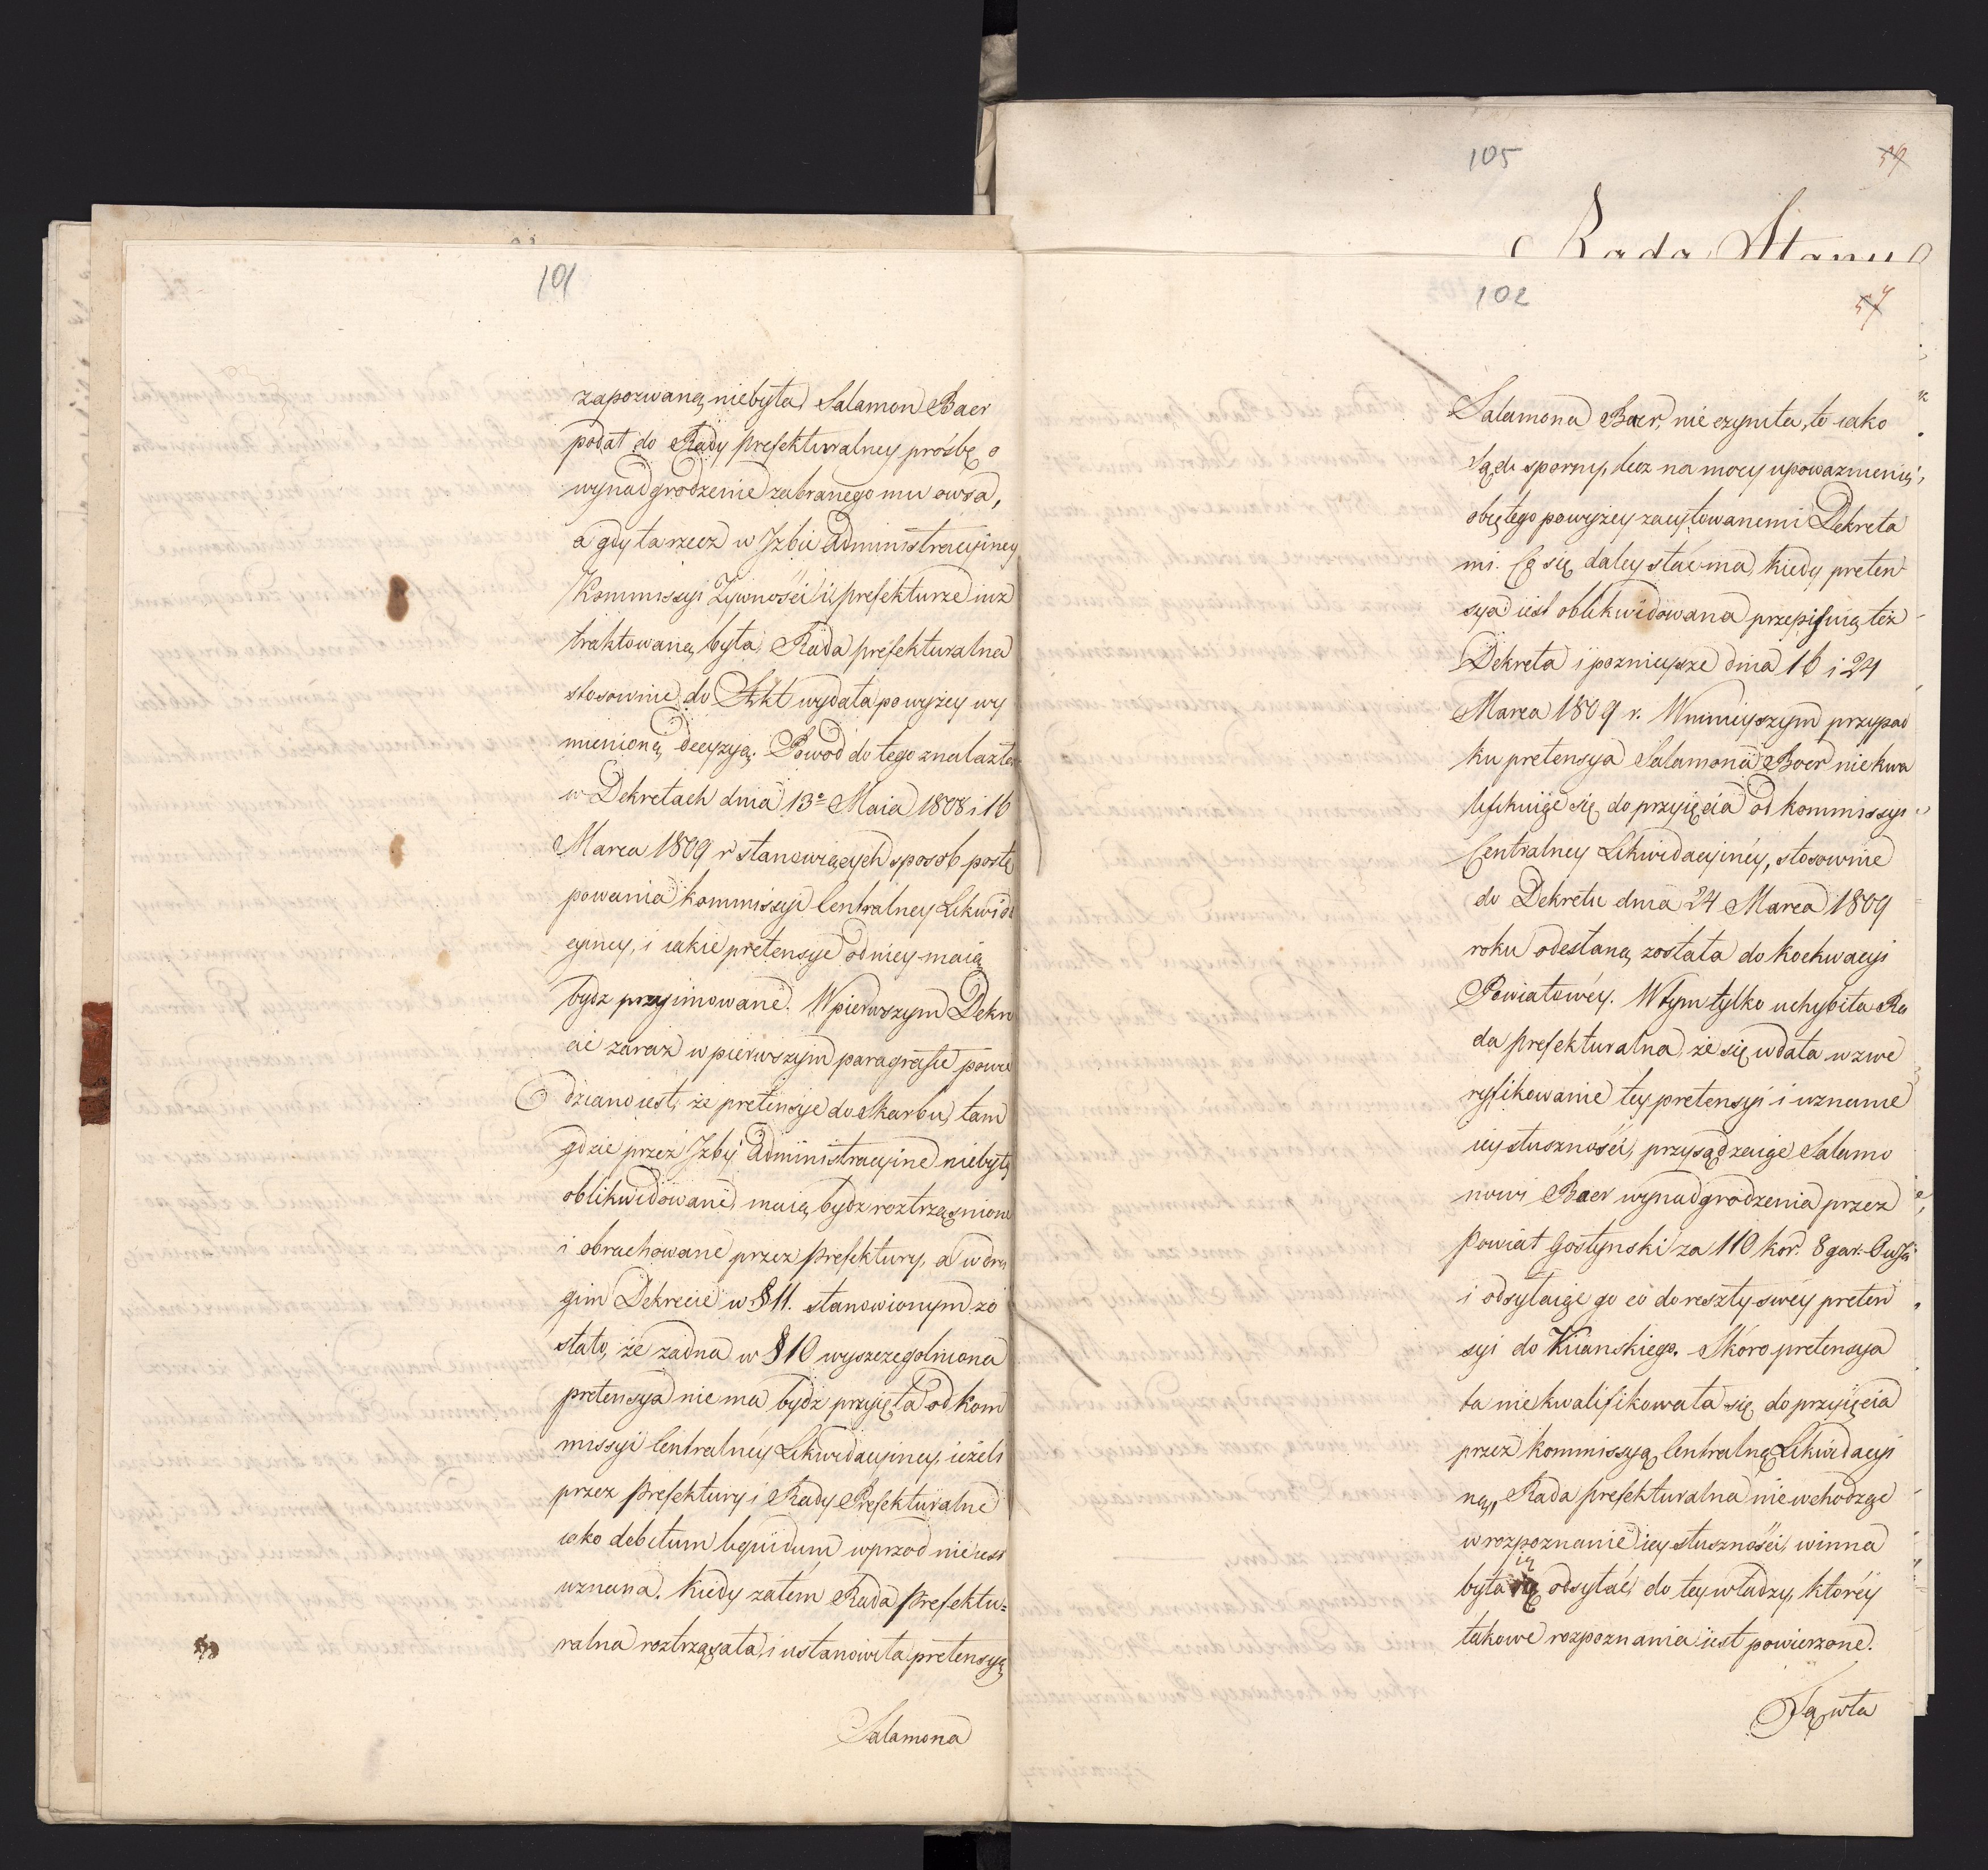 101
zapozwaną niebyła, Salamon Baer
podał do Rady prefekturalney prośbę o
wynadgrodzenie zabranego mu owsa,
a gdy ta rzecz w Jzbie Administracyiney
Kommissyi Żywności i prefekturze iuż
traktowaną była, Rada prefekturalna
stosownie do Akt wydała powyżey wy
mienioną decyzyą. Powod do tego znalazła
w Dekretach dnia 13º Maia 1808 i 16
Marca 1809 r stanowiących sposob postę
powania kommissyi Centralney Likwida
cyiney, i iakie pretensye od niey maią
bydz przyimowane. W pierwszym Dekre
cie zaraz w pierwszym paragrafie powie
dziano iest, że pretensye do Skarbu, tam
gdzie przez Jzby Administracyine niebyły
oblikwidowane, maią bydz roztrząśnione
i obrachowane przez prefektury, a w dru
gim Dekrecie w § 11. stanowionym zo
stało, że żadna w § 10 wyszczegolniona
pretensya nie ma bydz przyięta od kom
missyi Centralney Likwidacyiney, ieżeli
przez prefektury i Rady Prefekturalne
iako debitum liquidum wprzod nie iest
uznana. Kiedy zatem Rada Prefektu=
ralna roztrząsała, i ustanowiła pretensyą
Salamona
105
Rada Stanu
102
57
Salamona Baer, nie czyniła, to iako
Sąd sporny, lecz na mocy upoważnienia,
obiętego powyżey zacytowanemi Dekreta
mi. Co się daley stać ma, kiedy preten
sya iest oblikwidowana przepisuią też
Dekreta i poznieysze dnia 16 i 24
Marca 1809 r. W ninieyszym przypad
ku pretensya Salamona Baer nie kwa
lifikuiąc się do przyięcia od kommissyi
Centralney Likwidacyiney, stosownie
do Dekretu dnia 24 Marca 1809
roku odesłaną została do Koekwacyi
Powiatowéy. W tym tylko uchybiła Ra
da prefekturalna, że się wdała w zwe
ryfikowanie tey pretensyi i uznanie
iey słuszności, przysądzaiąc Salamo
nowi Baer wynadgrodzenia przez
Powiat Gostynski za 110 kor. 8 gar. Owsa
i odsyłaiąc go co do reszty swéy preten
syi do Kuianskiego. Skoro pretensya
ta nie kwalifikowała się do przyięcia
przez kommissyą Centralną Likwidacyi
ną, Rada prefekturalna nie wchodząc
w rozpoznanie iey słuszności, winna
była ią odsyłać do tey władzy, któréy
takowe rozpoznania iest powierzone.